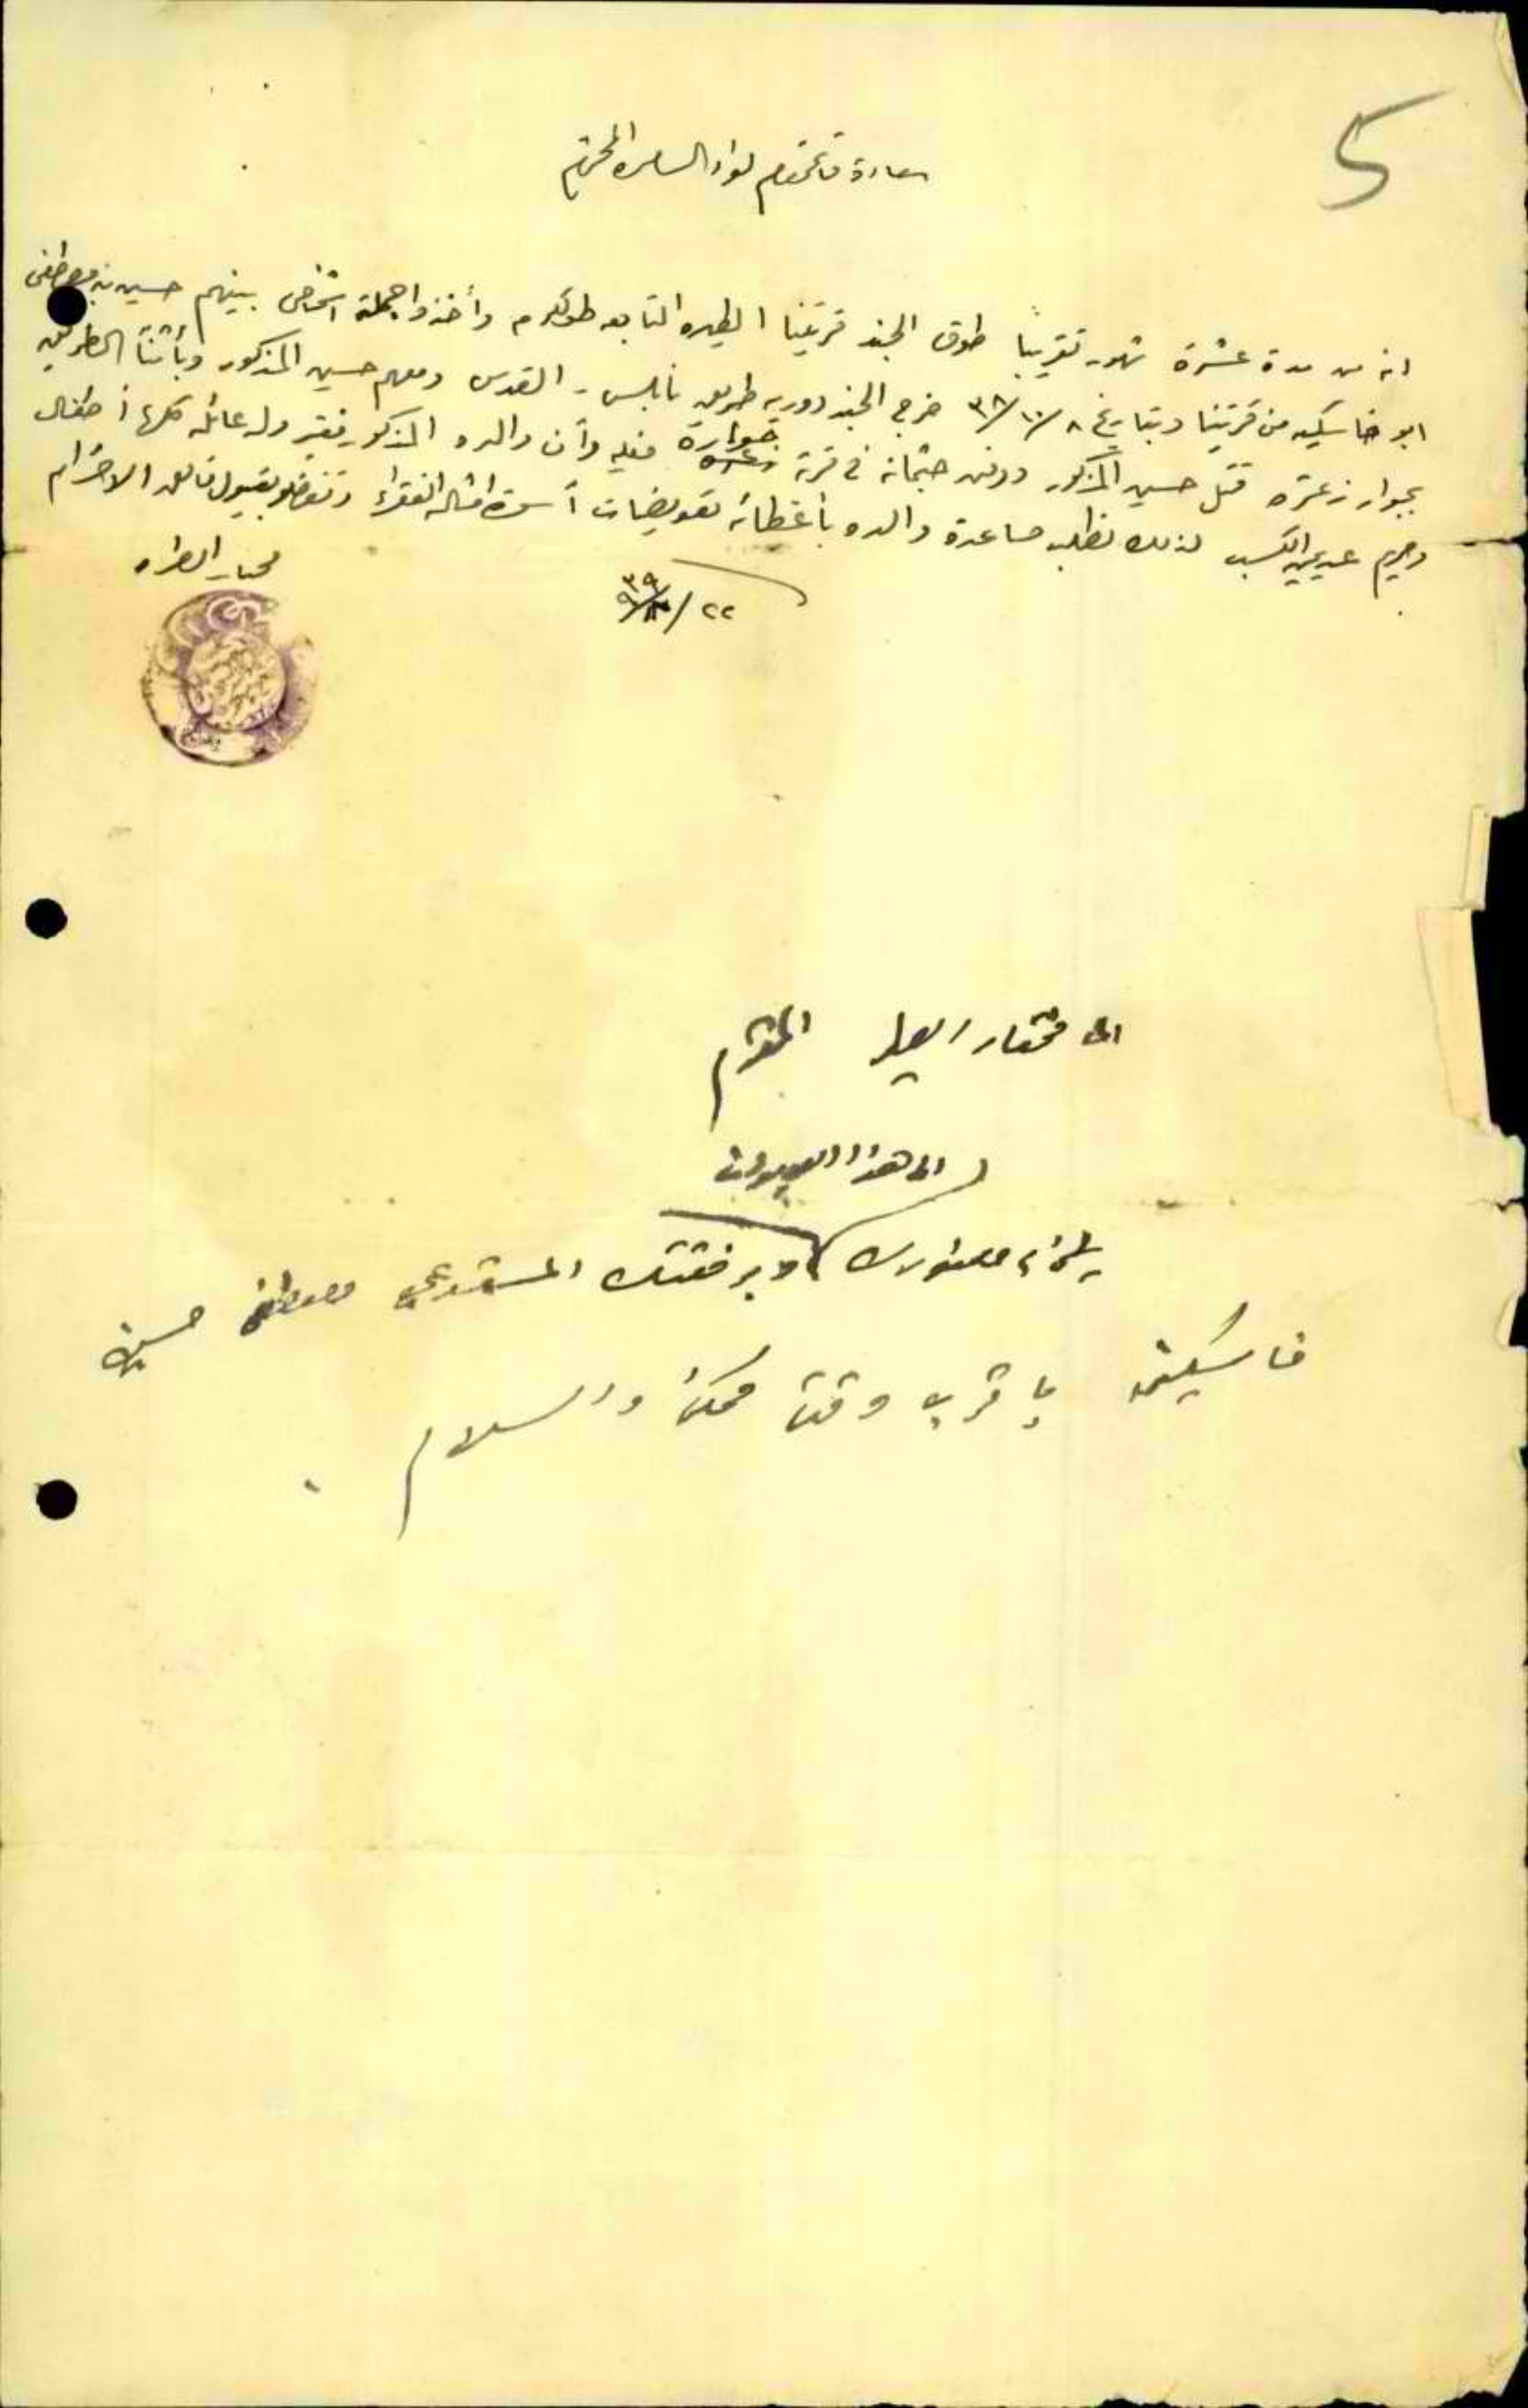 5
سعادة قائمقام لواء السامره المحترم
انه من مدة عشرة شهور تقريباً طوق الجند قريتنا الطيره التابعه طولكرم وأخذوا جملة اشخاص بينهم حسين بن مصطفى
ابو خاسكيه من قريتنا وبتاريخ ٨/١٠/٣٨ خرج الجند دوريه طريق نابلس - القدس ومعهم حسين المذكور وبأثناء الطريق
بجوار زعتره قتل حسين المذكور ودفن جثمانه في قرية حوارة فعليه وأن والده المذكور فقير وله عائله كلها أطفال
وهم عديمي الكسب لذلك نطلب مساعدة والده بأعطائه تعويضات أسوة امثاله الفقراء وتفضلو بقبول فائق الاحترام
٢٢/٩/٣٩
مختار الطيره
الى مختار الطيره المحترم
الى هذا
يلزم حضورك وبرفقتك المستدعي مصطفى حسين
خاسكيه باقرب وقت ممكن والسلام